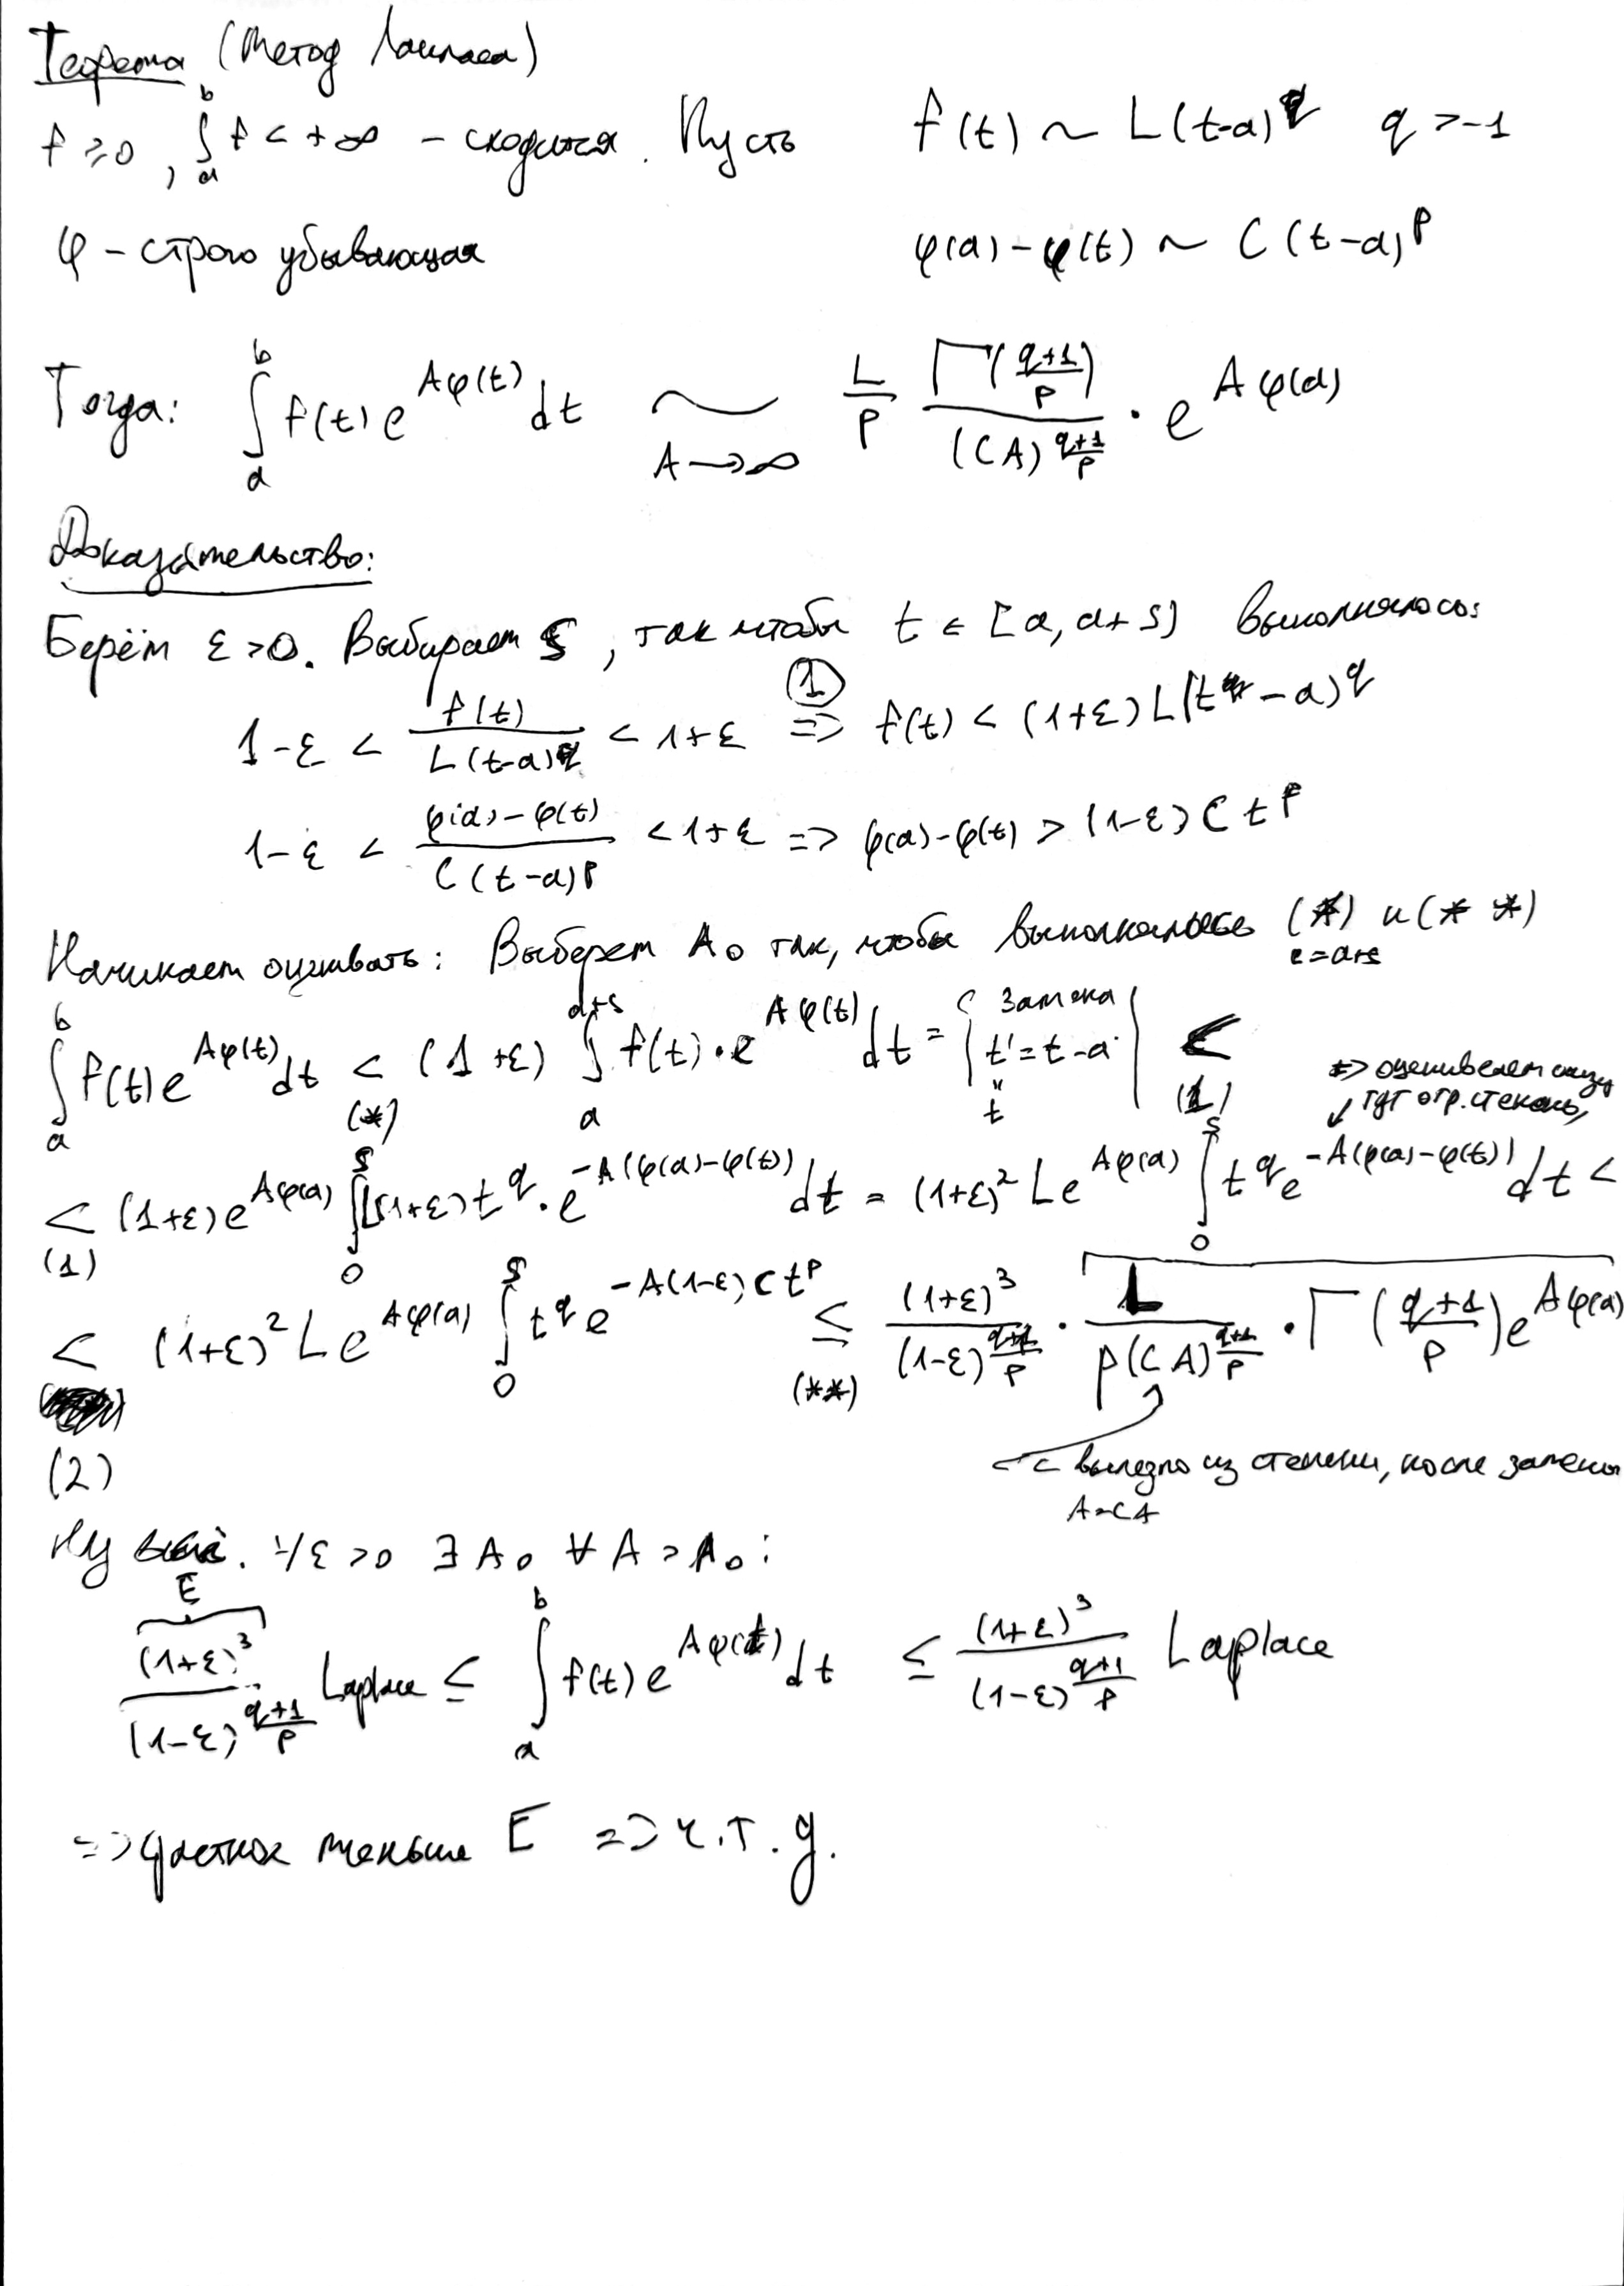 Теорема (Метод Лапласа)
f ≥ 0, ∫_a^b f < +∞ – сходится. Пусть f(t) ~ L(t-a)^q q > -1
φ – строго убывающая φ(a) - φ(t) ~ C(t-a)^p
Тогда: ∫_a^b f(t) e^{Aφ(t)} dt ~_{A→∞} L/p Γ((q+1)/p)/(CA)^{(q+1)/p} · e^{Aφ(a)}
Доказательство:
Берём ε > 0. Выбираем s, так чтобы t ∈ [a, a+s] выполнялось:
1-ε < f(t)/(L(t-a)^q) < 1+ε ⇒ (1) f(t) < (1+ε) L(t-a)^q
1-ε < (φ(a)-φ(t))/(C(t-a)^p) < 1+ε => φ(a)-φ(t) > (1-ε) C t^p
Начинаем оценивать: Выберем A_0 так, чтобы выполнялось (*) и (**)
c = a+s
∫_a^b f(t) e^{Aφ(t)} dt <_{(*)} (1+ε) ∫_a^{a+s} f(t) · e^{Aφ(t)} dt = | Замена t' = t-a " t | <_{(1)}
=> оцениваем снизу
тут отр. степень,
<_{(1)} (1+ε) e^{Aφ(a)} ∫_0^s L(1+ε) t^q · e^{-A(φ(a)-φ(t))} dt = (1+ε)^2 L e^{Aφ(a)} ∫_0^s t^q e^{-A(φ(a)-φ(t))} dt <
< (1+ε)^2 L e^{Aφ(a)} ∫_0^s t^q e^{-A(1-ε)C t^p} ≤_{(**)} (1+ε)^3/(1-ε)^{(q+1)/p} · L/(p(CA)^{(q+1)/p}) · Γ((q+1)/p) e^{Aφ(a)}
(2)
вылезло из степени, после замены
A = CA
Ну всё. ∀ε > 0 ∃ A_0 ∀ A > A_0:
E
(1+ε)^3/(1-ε)^{(q+1)/p} Laplace ≤ ∫_a^b f(t) e^{Aφ(t)} dt ≤ (1+ε)^3/(1-ε)^{(q+1)/p} Laplace
=> частное меньше E => ч.т.д.